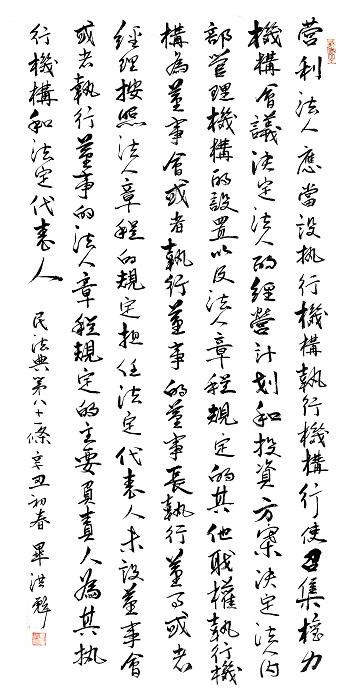 营利法人應當設执行機構執行機構行使召集權力
機構會議决定法人的經營計划和投資方案决定法人内
部管理機構的設置以及法人章程規定的其他职權執行機
構為董事會或者執行董事的董事長執行董事或者
經理按照法人章程的規定担任法定代表人未設董事會
或者執行董事的法人章程規定的主要負責人為其执
行機構和法定代表人
民法典第八十一條辛丑初春畢洪